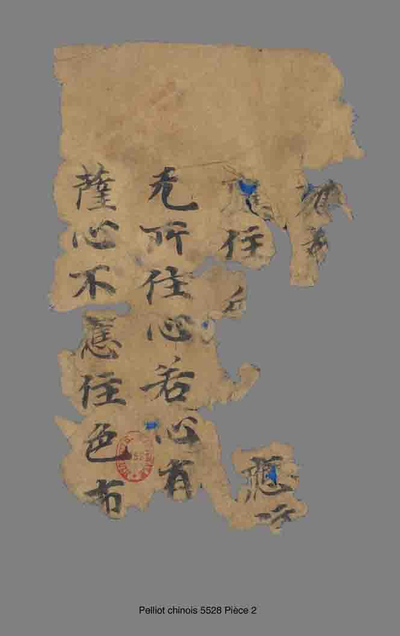 應住
應
无所住心若心有
薩心不應住色布
Pelliot chinois 5528 Pièce 2